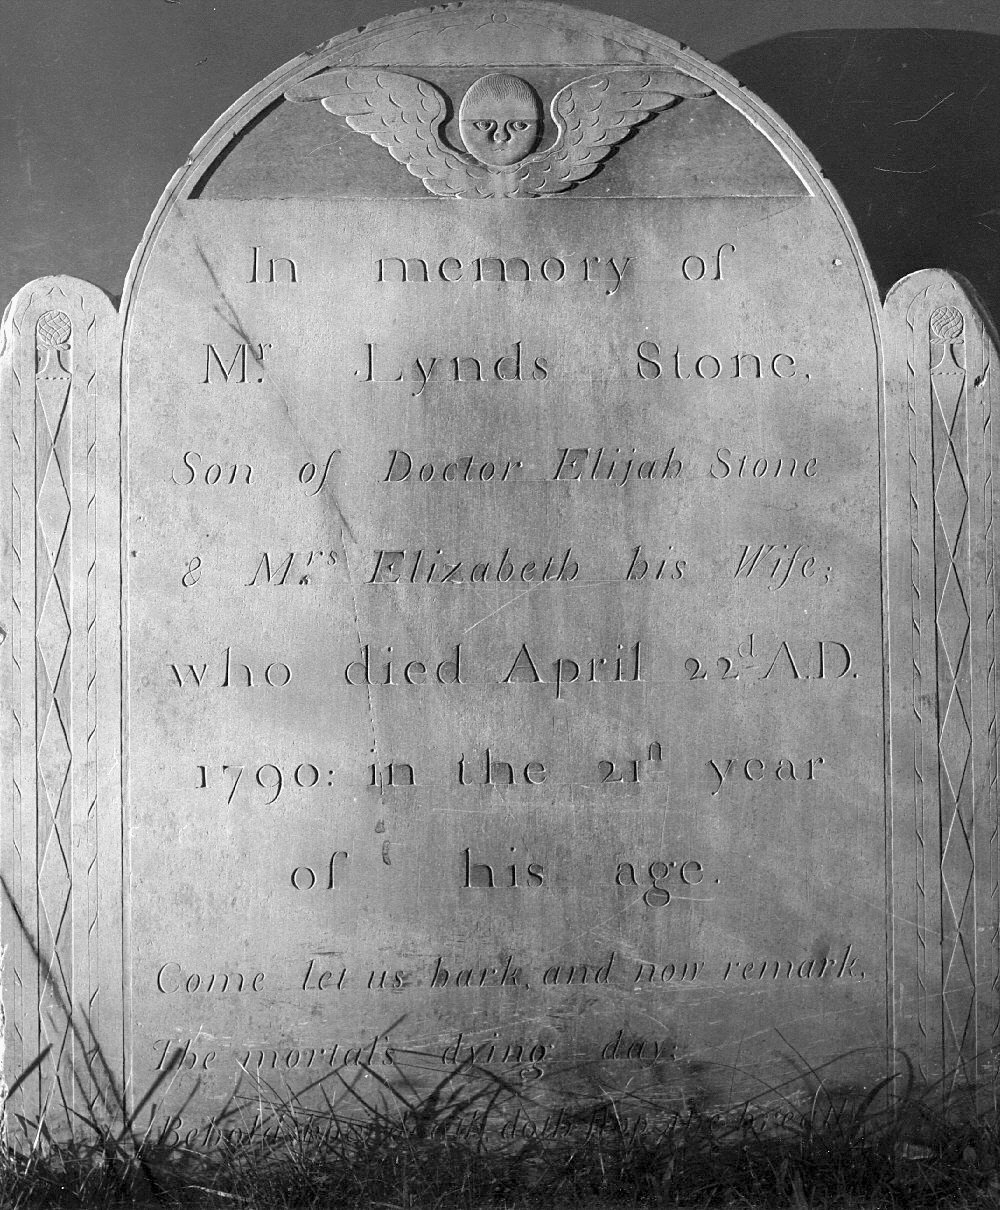 In memory of
Mr. Lynds Stone,
Son of Doctor Elijah Stone
& Mrs. Elizabeth his Wife;
who died April 22d A.D.
1790: in the 21ſt year
of his age.
Come let us hark, and now remark,
The mortal's dying day;
Behold when death doth stop the breath